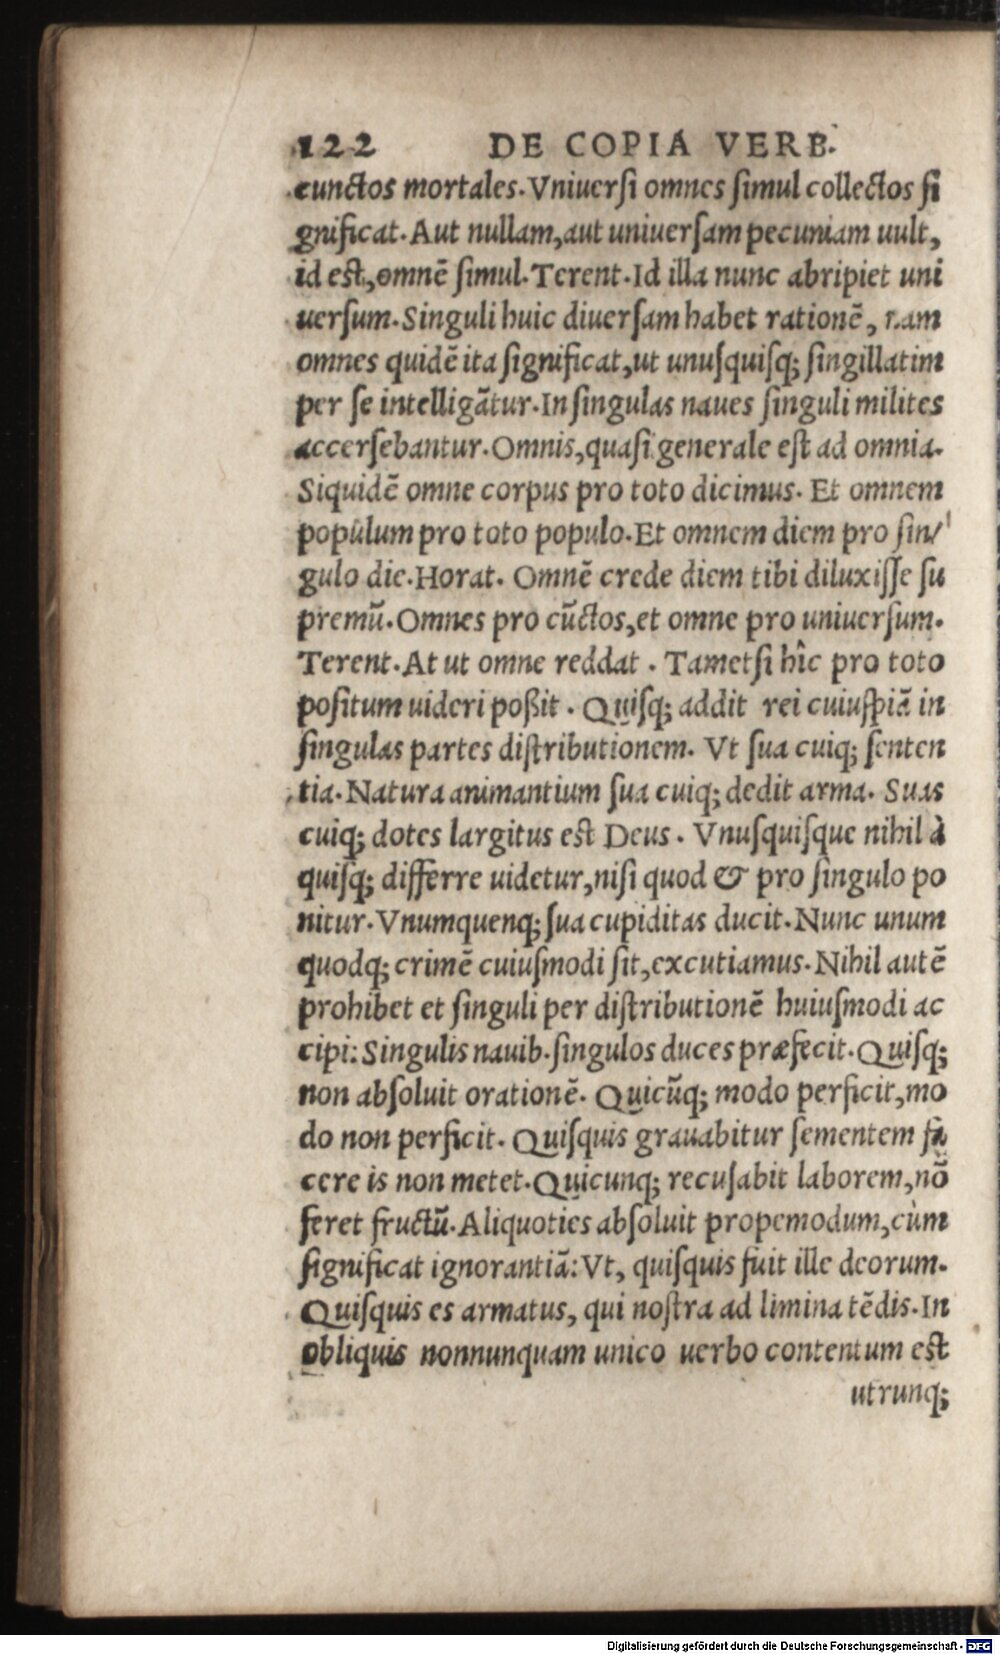 122 DE COPIA VERB.
cunctos mortales. Vniuersi omnes simul collectos si
gnificat. Aut nullam, aut uniuersam pecuniam uult,
id est, omnē simul. Terent. Id illa nunc abripiet uni
uersum. Singuli huic diuersam habet rationē, nam
omnes quidē ita significat, ut unusquisq; singillatim
per se intelligātur. In singulas naues singuli milites
accersebantur. Omnis, quasi generale est ad omnia.
Siquidē omne corpus pro toto dicimus. Et omnem
populum pro toto populo. Et omnem diem pro sin/
gulo die. Horat. Omnē crede diem tibi diluxisse su
premū. Omnes pro cūctos, et omne pro uniuersum.
Terent. At ut omne reddat. Tametsi hîc pro toto
positum uideri poßit. Quisq; addit rei cuiuspiā in
singulas partes distributionem. Vt sua cuiq; senten
tia. Natura animantium sua cuiq; dedit arma. Suas
cuiq; dotes largitus est Deus. Vnusquisque nihil à
quisq; differre uidetur, nisi quod & pro singulo po
nitur. Vnumquenq; sua cupiditas ducit. Nunc unum
quodq; crimē cuiusmodi sit, excutiamus. Nihil autē
prohibet et singuli per distributionē huiusmodi ac
cipi: Singulis nauib. singulos duces præfecit. Quisq;
non absoluit orationē. Quicūq; modo perficit, mo
do non perficit. Quisquis grauabitur sementem fa
cere is non metet. Quicunq; recusabit laborem, nō
feret fructū. Aliquoties absoluit propemodum, cùm
significat ignorantiā: Vt, quisquis fuit ille deorum.
Quisquis es armatus, qui nostra ad limina tēdis. In
obliquis nonnunquam unico uerbo contentum est
utrunq;
Digitalisierung gefördert durch die Deutsche Forschungsgemeinschaft - DFG